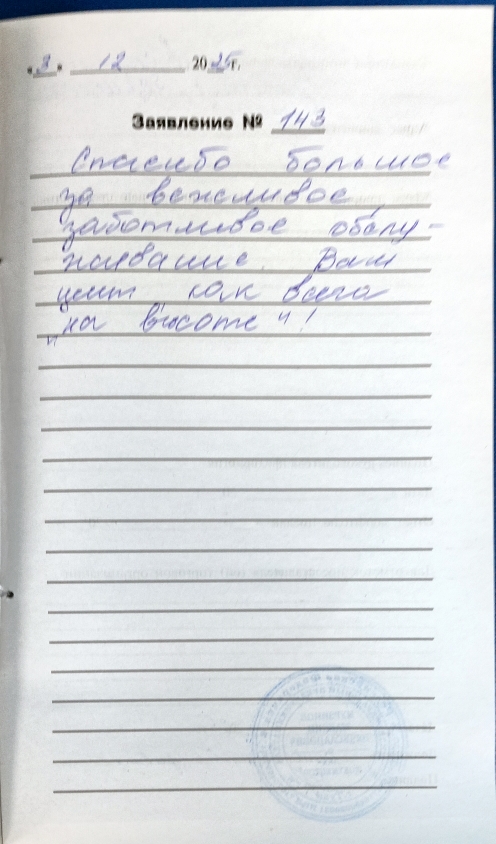 « 3 » 12 2025 г.
Заявление № 143
Спасибо большое
за вежливое,
заботливое обслу-
живание. Ваш
цент как всега
"на высоте"!